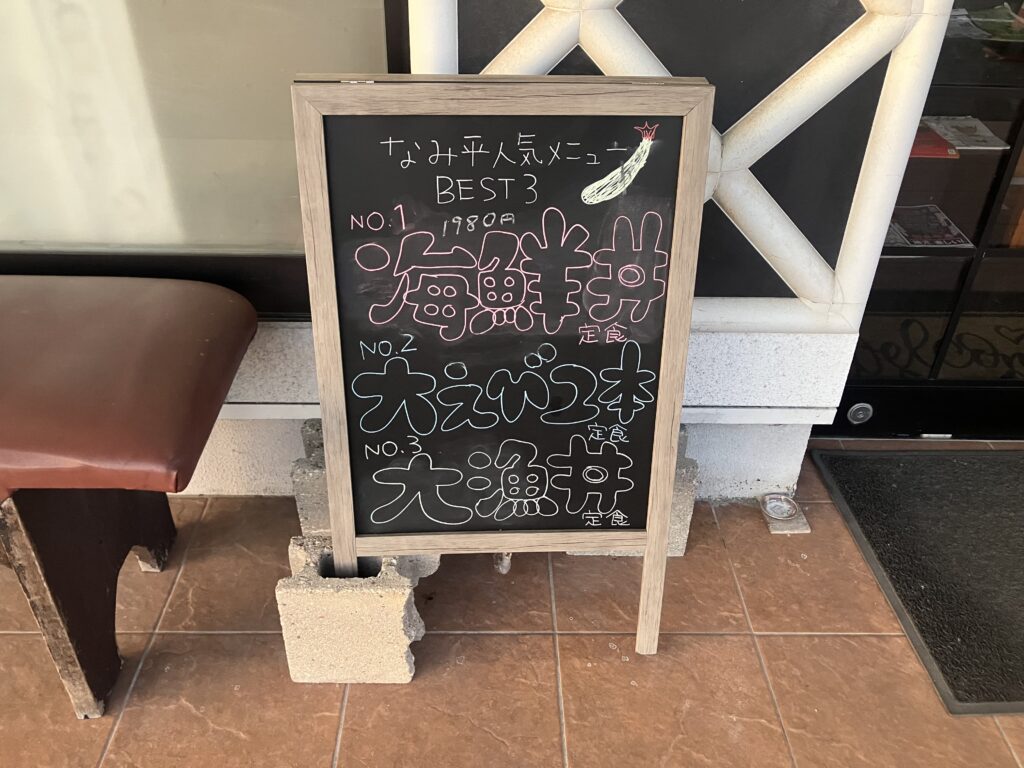 なみ平人気メニュー
BEST3
NO.1 1980円
海鮮丼
定食
NO.2
大えび2本
定食
NO.3
大漁丼
定食